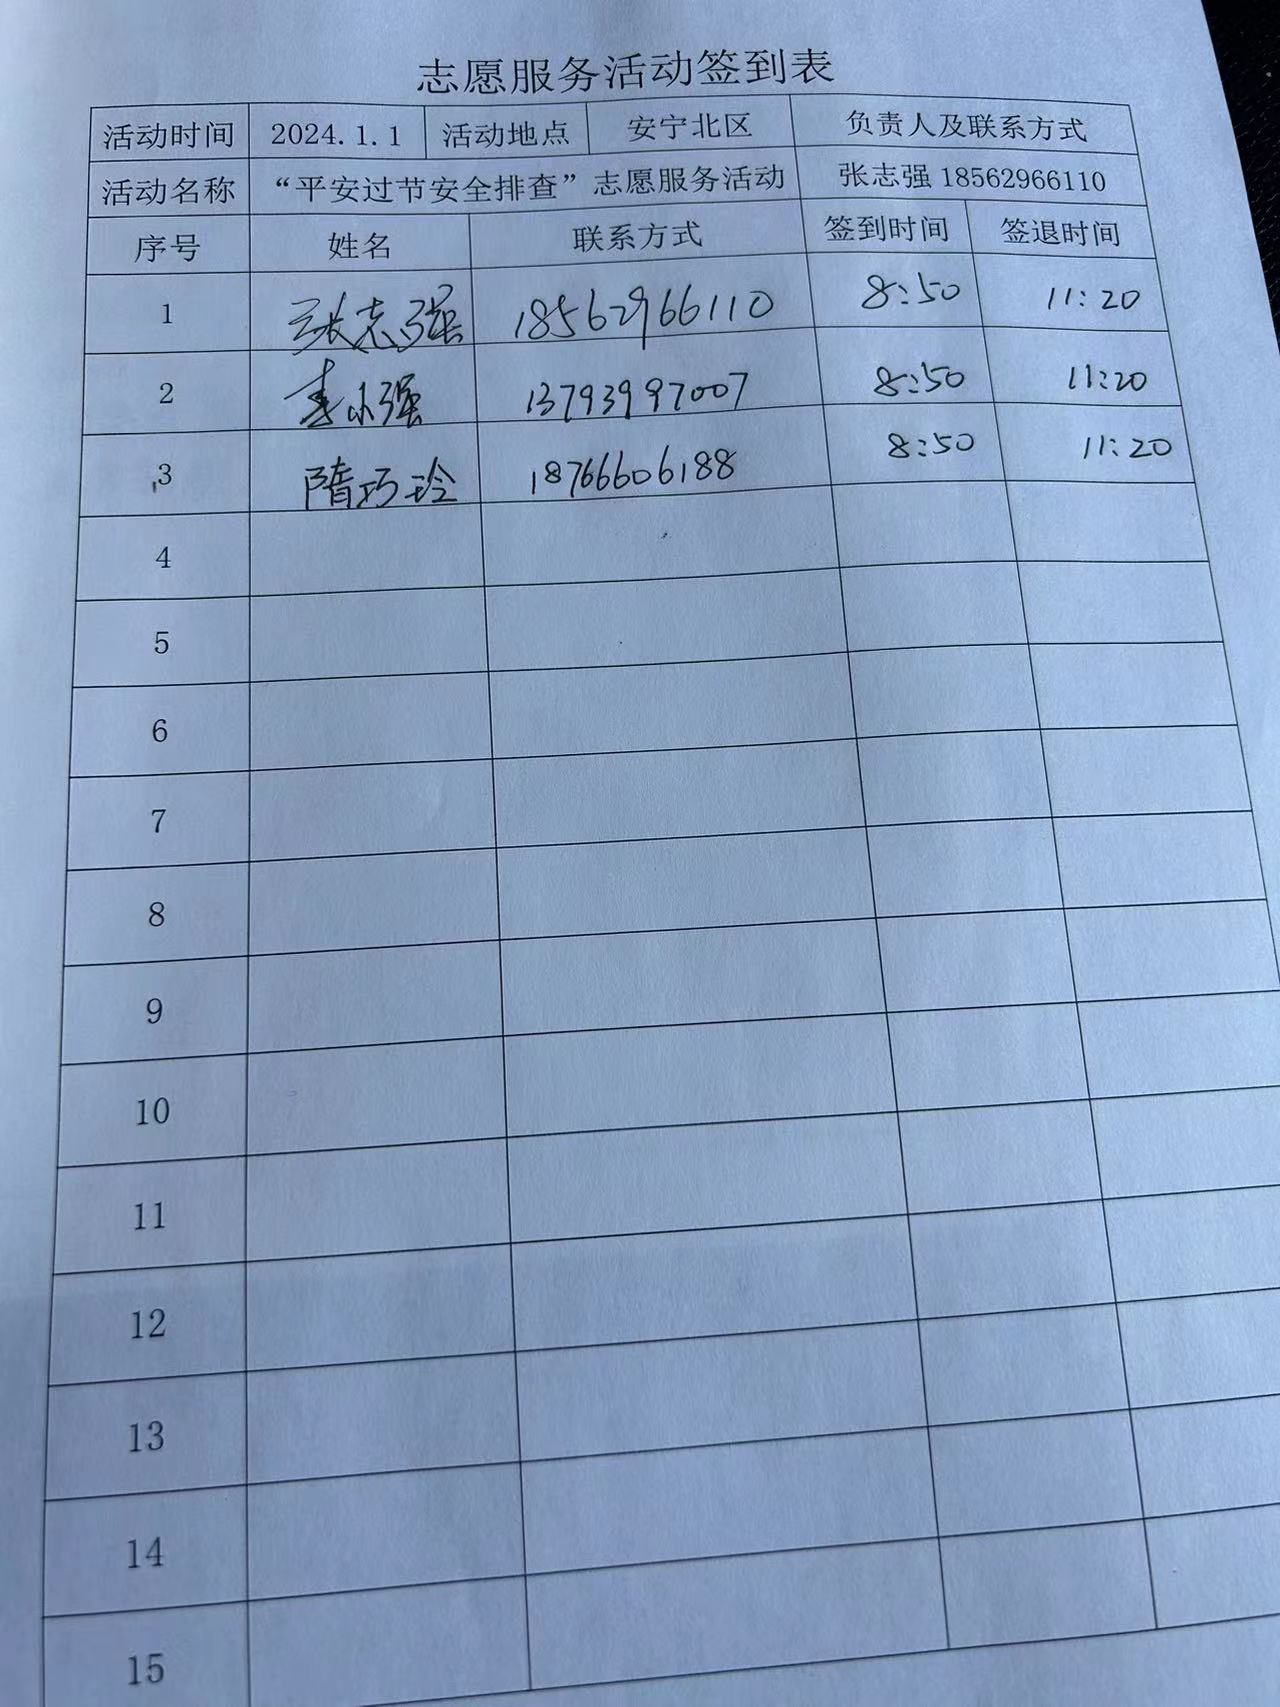 志愿服务活动签到表
活动时间 2024.1.1 活动地点 安宁北区 负责人及联系方式
活动名称 “平安过节安全排查”志愿服务活动 张志强 18562966110
序号 姓名 联系方式 签到时间 签退时间
1 张志强 18562966110 8:50 11:20
2 李小强 13793997007 8:50 11:20
3 隋巧玲 18766606188 8:50 11:20
4
5
6
7
8
9
10
11
12
13
14
15